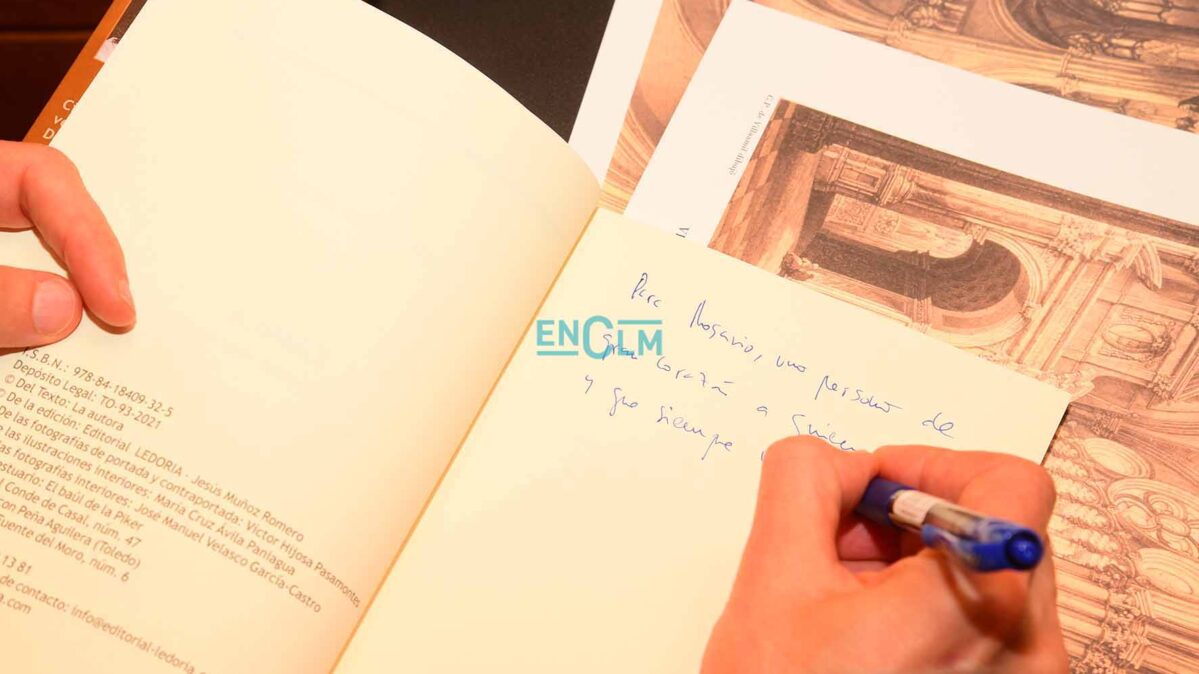 I.S.B.N.: 978-84-18409-32-5
Depósito Legal: TO-93-2021
© Del Texto: La autora
© De la edición: Editorial LEDORIA - Jesús Muñoz Romero
De las fotografías de portada y contraportada: Víctor Hijosa Pasamontes
las ilustraciones interiores: María Cruz Ávila Paniagua
fotografías interiores: José Manuel Velasco García-Castro
estuario: El baúl de la Piker
Conde de Casal, núm. 47
con Peña Aguilera (Toledo)
Fuente del Moro, núm. 6
13 81
de contacto: info@editorial-ledoria.
.com
ENCLM
C. P. de Villaamil dibujó
Para Rosario, una persona de
gran corazón a quien
y que siempre